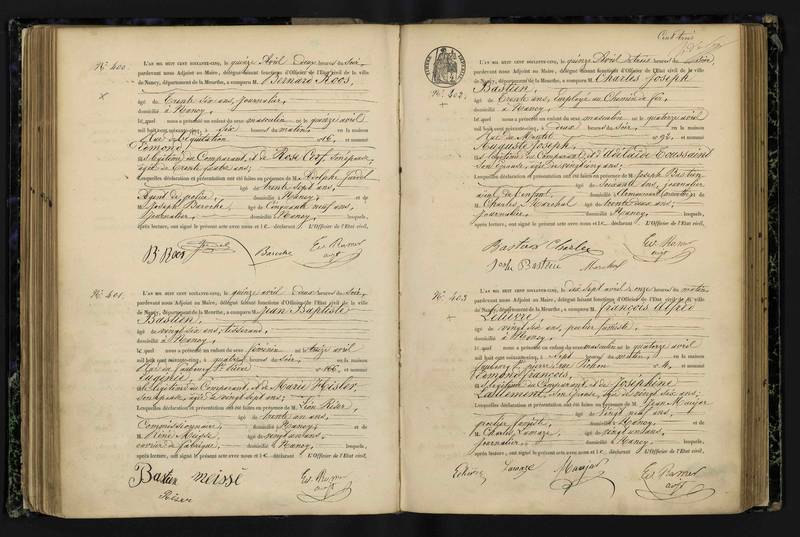 N° 400.
L'AN MIL HUIT CENT SOIXANTE-CINQ, le quinze Avril Deux heures du Soir,
pardevant nous Adjoint au Maire, délégué faisant fonctions d'Officier de l'Etat civil de la ville
de Nancy, département de la Meurthe, a comparu M. Bernard Roos,
âgé de Trente Six ans, Journalier,
domicilié à Nancy,
lequel nous a présenté un enfant du sexe masculin né le quinze avril
mil huit cent soixante-cinq, à Six heures du matin, en la maison
Rue de l'Equitation n° 16, et nommé
Edmond,
fils légitime du Comparant, et de Rose
âgée de Trente quatre ans;
Lesquelles déclaration et présentation ont été faites en présence de M. Adolphe
âgé de trente Sept ans,
Agent de police, domicilié à Nancy, et de
M. Joseph Baroche, âgé de Cinquante neuf ans,
Journalier, domicilié à Nancy, lesquels,
après lecture, ont signé le présent acte avec nous et L'Officier de l'Etat civil,
B Roos Baroche Ev. Ramel
adjt
N° 401.
L'AN MIL HUIT CENT SOIXANTE-CINQ, le quinze avril Deux heures du Soir,
pardevant nous Adjoint au Maire, délégué faisant fonctions d'Officier de l'Etat civil de la ville
de Nancy, département de la Meurthe, a comparu M. Jean Baptiste
Bastien,
âgé de vingt six ans, tisserand,
domicilié à Nancy,
lequel nous a présenté un enfant du sexe féminin né le treize avril
mil huit cent soixante-cinq, à quatre heures du Soir, en la maison
Rue du faubourg St. n° 166, et nommé
Eugénie,
fille légitime du Comparant, et de Marie
Son épouse, âgée de vingt sept ans;
Lesquelles déclaration et présentation ont été faites en présence de M. Léon
âgé de trente un ans,
Commissionnaire, domicilié à Nancy, et de
M. René âgé de vingt ans,
ouvrier de fabrique, domicilié à Nancy, lesquels,
après lecture, ont signé le présent acte avec nous et L'Officier de l'Etat civil,
Bastien Ev. Ramel
adjt
Cent trois
N° 402.
L'AN MIL HUIT CENT SOIXANTE-CINQ, le quinze Avril à trois heures du Soir,
pardevant nous Adjoint au Maire, délégué faisant fonctions d'Officier de l'Etat civil de la ville
de Nancy, département de la Meurthe, a comparu M. Charles Joseph
Bastien,
âgé de Trente ans, Employé au Chemin de fer,
domicilié à Nancy,
lequel nous a présenté un enfant du sexe masculin né le quatorze avril
mil huit cent soixante-cinq, à deux heures du Soir, en la maison
Rue de n° 92, et nommé
Auguste Joseph,
fils légitime du Comparant, et d'Adélaïde Toussaint
Son épouse, âgée de vingt cinq ans;
Lesquelles déclaration et présentation ont été faites en présence de M. Joseph Bastien
âgé de Soixante ans, journalier
aïeul de l'enfant, domicilié à et de
M. Charles Marchal âgé de trente deux ans,
journalier, domicilié à Nancy, lesquels,
après lecture, ont signé le présent acte avec nous et L'Officier de l'Etat civil,
Bastien Charles Ev. Ramel
adjt
Bastien Marchal
N° 403
L'AN MIL HUIT CENT SOIXANTE-CINQ, le dix sept avril à onze heures du matin
pardevant nous Adjoint au Maire, délégué faisant fonctions d'Officier de l'Etat civil de la ville
de Nancy, département de la Meurthe, a comparu M. François Alfred
Lelièvre,
âgé de vingt six ans, potier
domicilié à Nancy,
lequel nous a présenté un enfant du sexe masculin né le quatorze avril
mil huit cent soixante-cinq, à Sept heures du matin, en la maison
faubourg St. pierre, rue n° 4, et nommé
Edmond François,
fils légitime du Comparant, et de Joséphine
Lallement, Son épouse, âgée de vingt six ans;
Lesquelles déclaration et présentation ont été faites en présence de M. Jean
âgé de vingt neuf ans,
potier domicilié à Nancy, et de
M. Charles Lamaze, âgé de
journalier, domicilié à Nancy, lesquels,
après lecture, ont signé le présent acte avec nous et L'Officier de l'Etat civil,
Lelièvre Lamaze Ev. Ramel
adjt